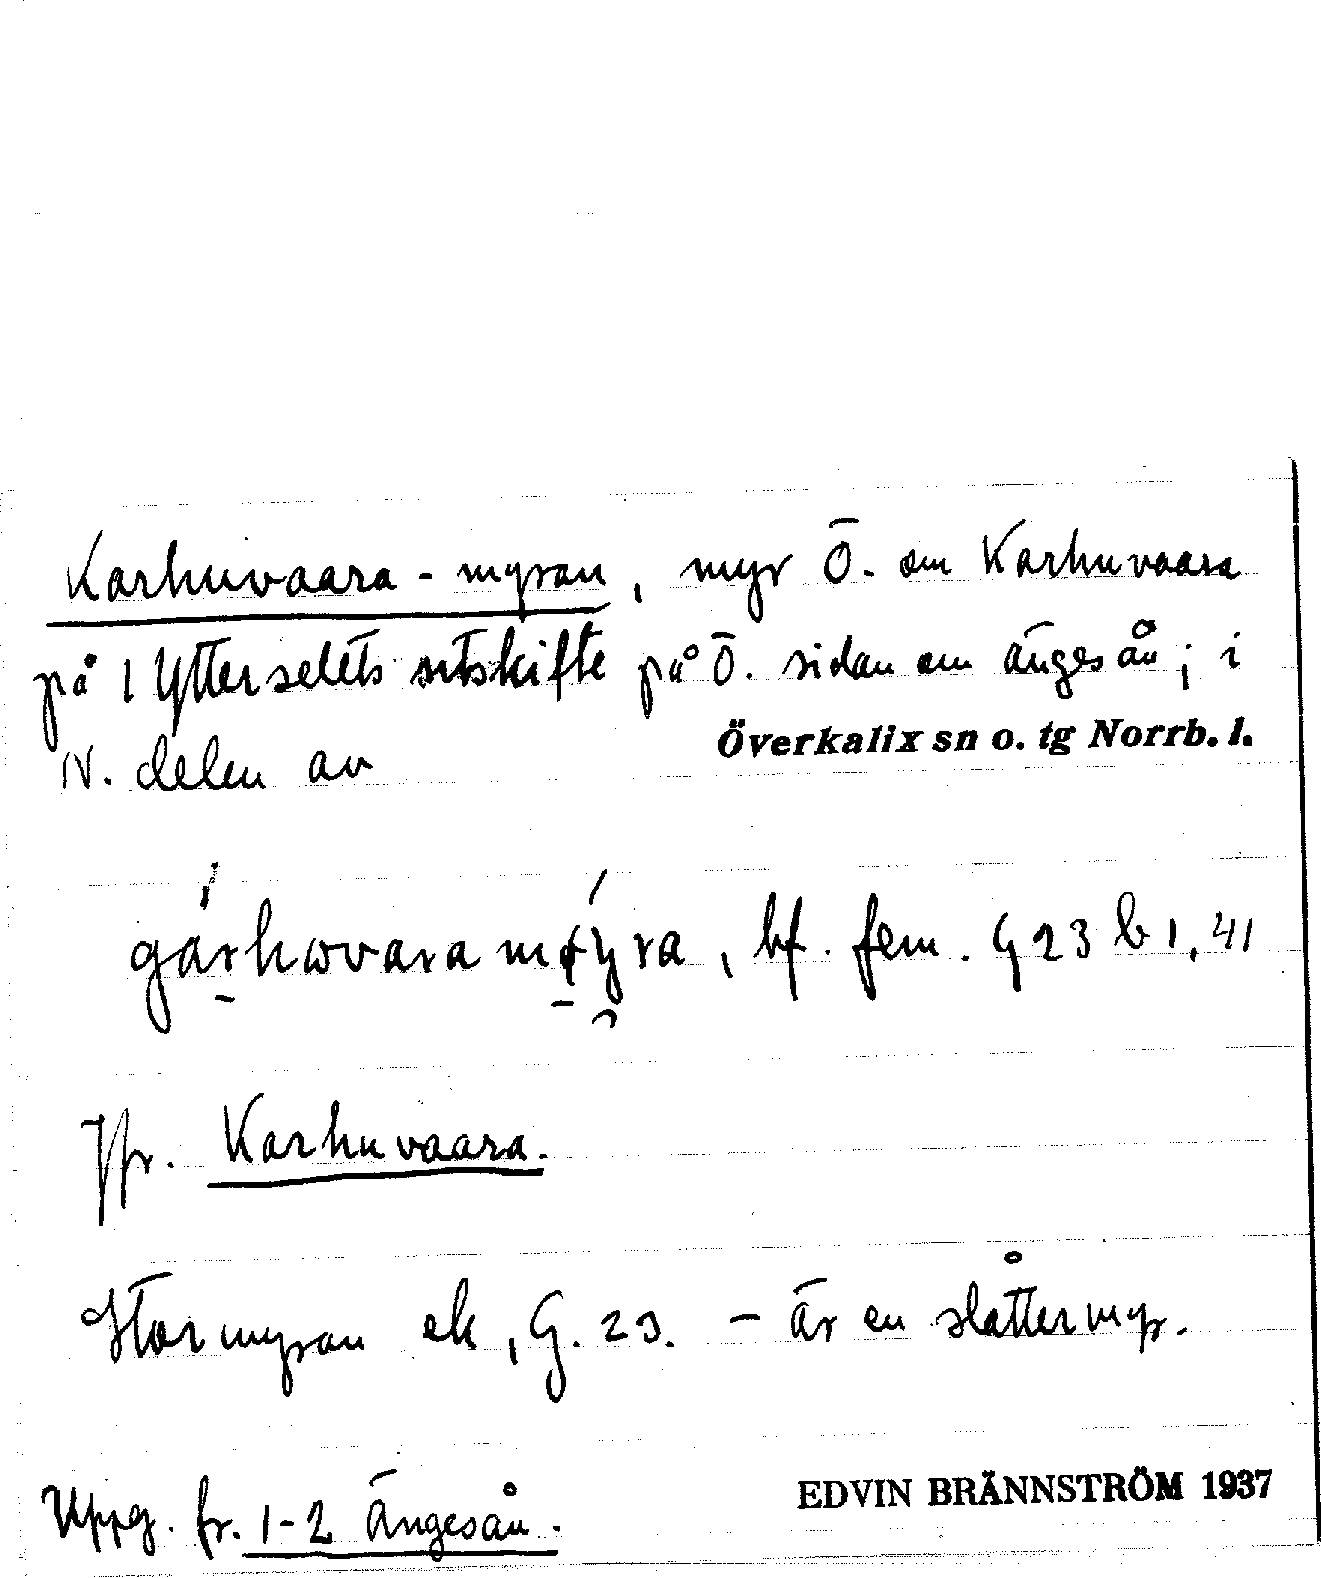 Karhuvaara-myran, myr Ö. om Karhuvaara
på 1 Ytterselets utskifte på Ö. sidan om Ängesån; i
N. delen av Överkalix sn o. tg Norrb. l.
gárhωvara mýra, bf. fem. G 23 b 1, 41
Jfr. Karhuvaara.
Stormyran ek, G. 23. – är en slåttermyr.
Uppg. fr. 1-2 Ängesån. EDVIN BRÄNNSTRÖM 1937